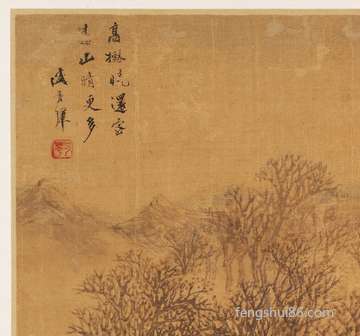 高樹曉還密
遠山晴更多
盛茂燁
fengshui86.com